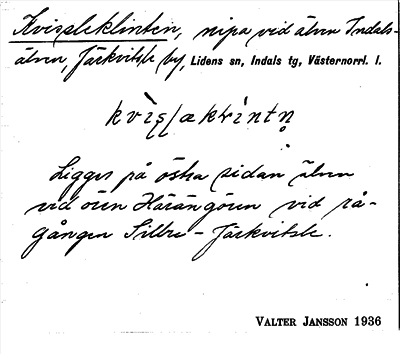 Kvissleklinten, nipa vid älven Indals-
älven, Järkvitsle by, Lidens sn, Indals tg, Västernorrl. l.
Ligger på östra sidan älven
vid ören Härängören vid rå-
gången Sillre - Järkvitsle.
VALTER JANSSON 1936